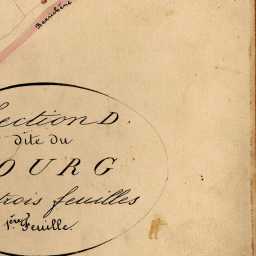 ection D.
dite du
OURG
trois feuilles
1ère Feuille.